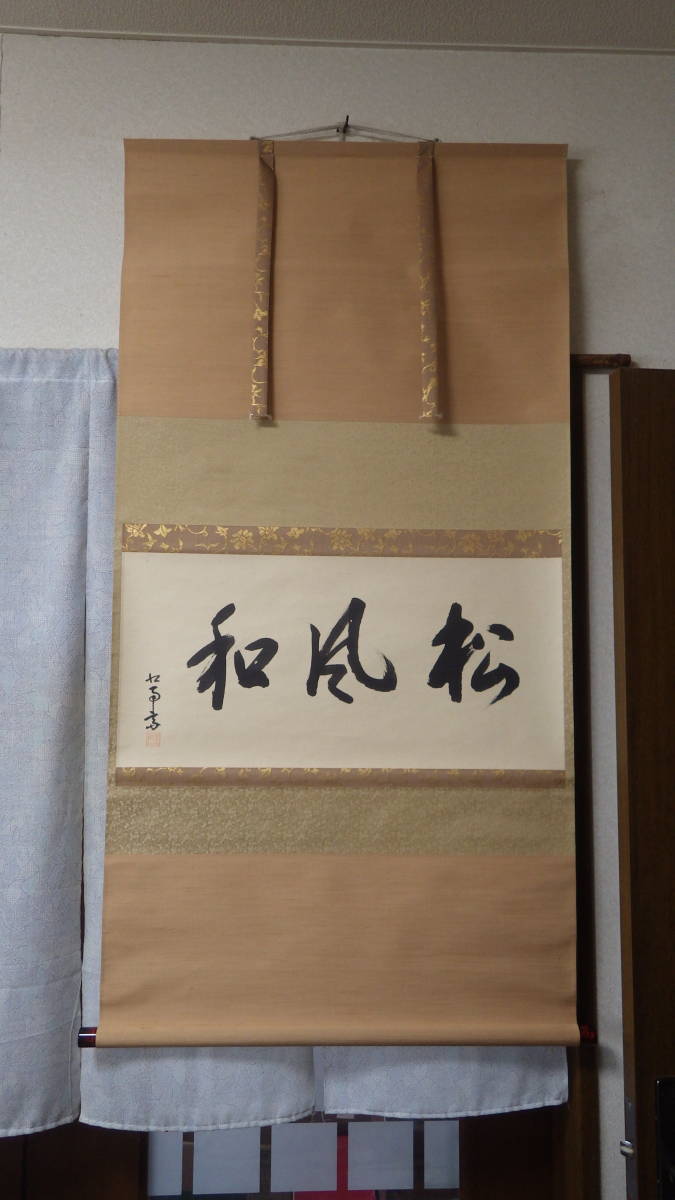 松風和